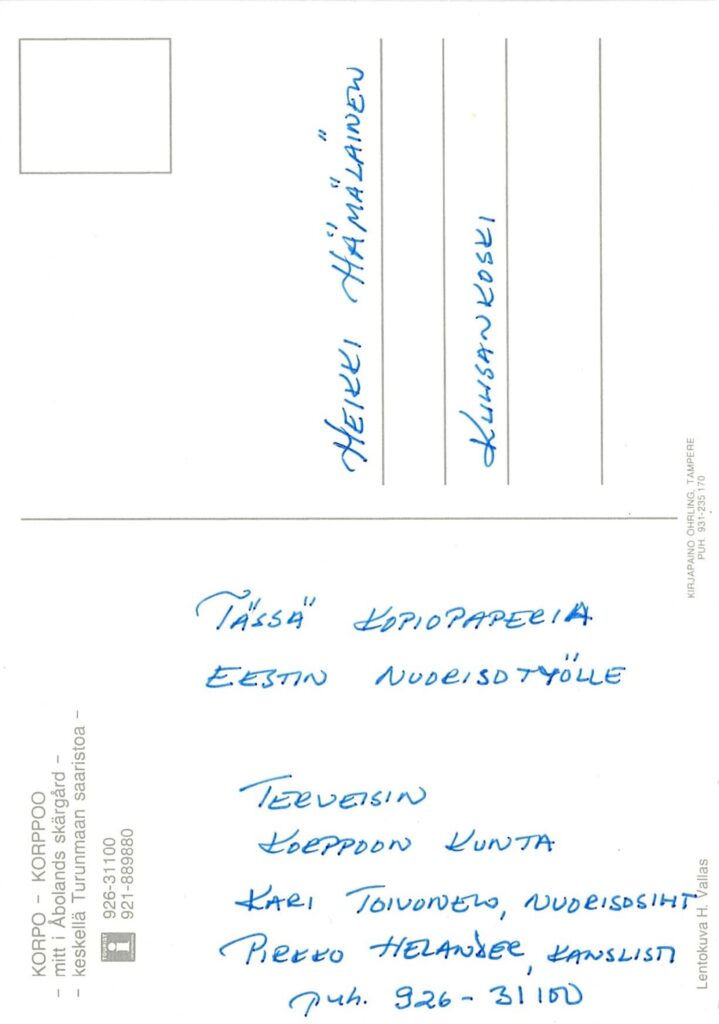 HEIKKI HÄMÄLÄINEN
KUUSANKOSKI
KIRJAPAINO ÖHRLING, TAMPERE
PUH. 931-235 170
TÄSSÄ KOPIOPAPERIA
EESTIN NUORISOTYÖLLE
TERVEISIN
KORPPOON KUNTA
KARI TOIVONEN, NUORISOSIHT
PIRKKO HELANDER, KANSLISTI
puh. 926-31100
KORPO – KORPPOO
– mitt i Åbolands skärgård –
– keskellä Turunmaan saaristoa –
926-31100
921-889880
Lentokuva H. Vallas